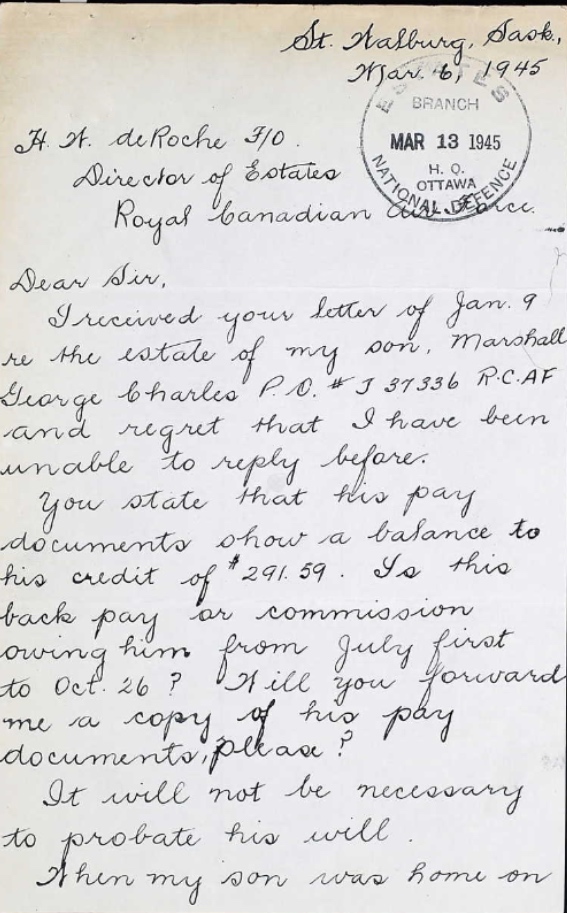 St. Walburg, Sask.,
Mar. 6, 1945
ESTATES
BRANCH
MAR 13 1945
H. Q.
OTTAWA
NATIONAL DEFENCE
H. W. deRoche F/O.
Director of Estates
Royal Canadian Air Force.
Dear Sir,
I received your letter of Jan. 9
re the estate of my son, Marshall
George Charles P.O. # J 37336 R.C.AF
and regret that I have been
unable to reply before.
You state that his pay
documents show a balance to
his credit of $291.59. Is this
back pay or commission
owing him from July first
to Oct. 26? Will you forward
me a copy of his pay
documents, please?
It will not be necessary
to probate his will.
When my son was home on